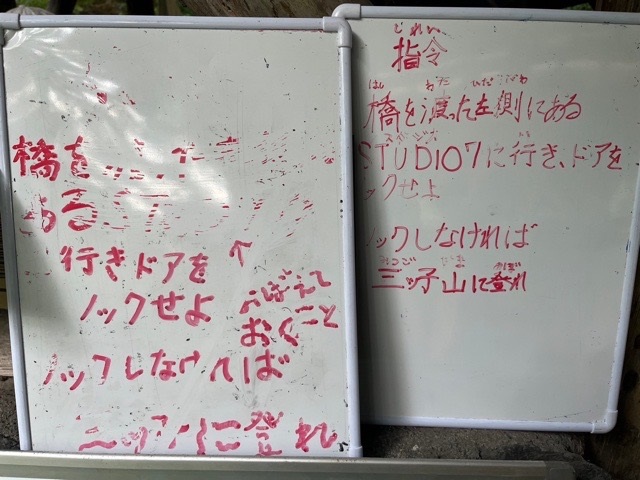 橋を
ある
行きドアを
ノックせよ
↑
おぼえて
おくこと
ノックしなければ
に登れ
しれい
指令
はし わた ひだりがわ
橋を渡った左側にある
スタジオ い
STUDIO7に行き、ドアを
ックせよ
ノックしなければ
みつご やま のぼ
三ッ子山に登れ